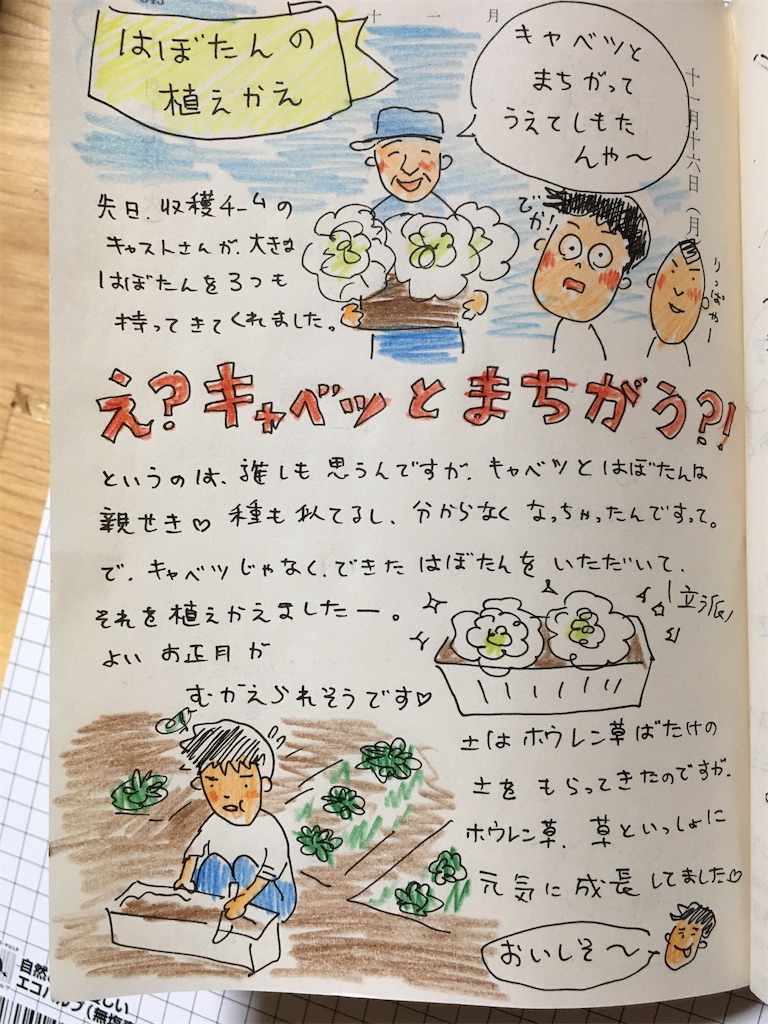 十一月
十一月十六日(月)
はぼたんの
植えかえ
キャベツと
まちがって
うえてしもた
んや〜
先日、収穫チームの
キャストさんが、大きな
はぼたんを3つも
持ってきてくれました。
でか!
りっぱやー
え?キャベツとまちがう?!
というのは、誰しも思うんですが、キャベツとはぼたんは
親せき♡ 種も似てるし、分からなくなっちゃったんですって。
で、キャベツじゃなく、できたはぼたんをいただいて、
それを植えかえましたー。
よいお正月が
むかえられそうです♡
立派
土はホウレン草ばたけの
土をもらってきたのですが、
ホウレン草、草といっしょに
元気に成長してました♡
おいしそ〜
自然
しい
(無塩